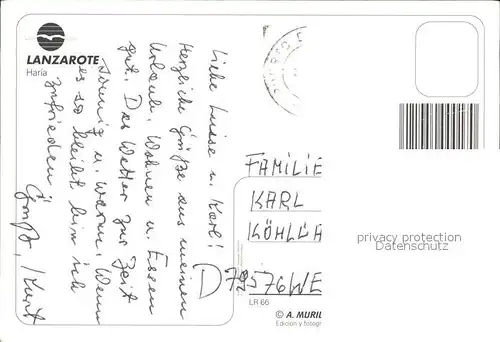 LANZAROTE
Haría
Liebe Luise u. Karl!
Herzliche Grüße aus meinem
Urlaub. Wohnen u. Essen
gut. Das Wetter zur Zeit
sonnig u. warm. Wenn
es so bleibt bin ich
zufrieden.
Gruß, Kurt
FAMILIE
KARL
D 79576 WE
LR 66
© A. MURIL
Edición y fotogr
privacy protection
Datenschutz